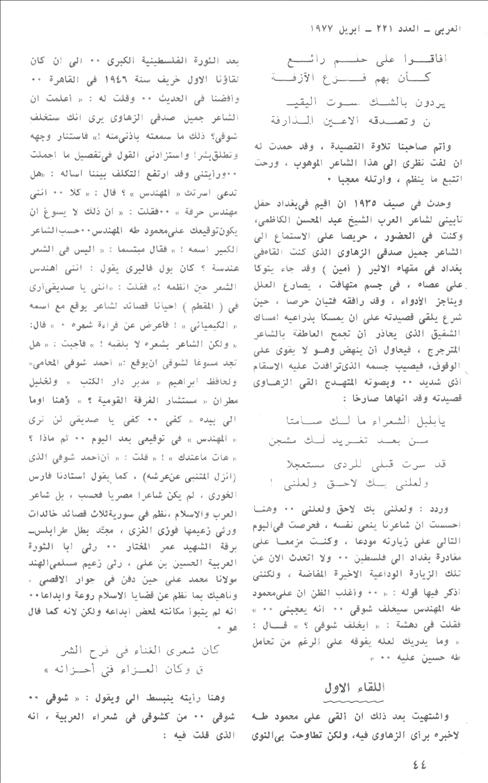 العربي ــ العدد ٢٢١ ــ ابريل ١٩٧٧
أفاقـــوا على حلـــم رائـــع
كـــأن بهم فـــزع الآزفـــة
يردون بالشـك سـوت اليقيـ
ن وتصدقه الاعين الـذارفة
وأتم صاحبنا تلاوة القصيدة ، وقد حمدت له
ان لفت نظرى الى هذا الشاعر الموهوب ، ورحت
اتتبع ما ينظم ، وارتله معجبا ·
وحدث في صيف ١٩٣٥ ان اقيم في بغداد حفل
تأبيني لشاعر العرب الشيخ عبد المحسن الكاظمي،
وكنت في الحضور ، حريصا على الاستماع الى
الشاعر جميل صدقى الزهاوى الذى كنت القاه في
بغداد في مقهاه الاثير ( أمين ) وقد جاء يتوكأ
على عصاه ، في جسم متهافت ، يصارع العلل
ويناجز الأدواء ، وقد رافقه فتيان حرصا ، حين
شرع يلقى قصيدته على ان يمسكا بذراعيه امساك
الشفيق الذى يحاذر أن تجمح العاطفة بالشاعر
المترجرج ، فيحاول أن ينهض وهـو لا يقوى على
الوقوف، فيصيب جسمه الذى ترافدت عليه الاسقام
أذى شديد ·· وبصوته المتهدج القى الزهـاوى
قصيدته وقد انهاها صارخا :
يا بلبل الشعراء ما لـك صـامتا
مـــن بعـد تغريد لـك مشجن
قد سرت قبلى للردى مستعجلا
ولعلنى بـك لاحـق ولعلنى !
وردد : ولعلنى بك لاحق ولعلنى ·· وهنـا
احسست ان شاعرنا ينعى نفسه ، فحرصت في اليوم
التالى على زيارته مودعا ، وكنت مزمعـا على
مغادرة بغداد الى فلسطين ·· ولا أتحدث الآن عن
تلك الزيارة الوداعية الاخيرة المفاضة ، ولكننى
اذكر فيها قوله : « ·· وأغلب الظن ان على محمود
طه المهندس سيخلف شوقى ·· انه يعجبنى ·· »
فقلت في دهشة : « أيخلف شوقى ؟ » قـــال :
« وما يدريك لعله يفوقه على الرغم من تحامل
طه حسين عليه ·· »
اللقاء الاول
واشتهيت بعد ذلك ان القى على محمود طـه
لأخبره برأى الزهاوى فيه، ولكن تطاوحت بى النوى
بعد الثورة الفلسطينية الكبرى ·· الى ان كان
لقاؤنا الاول خريف سنة ١٩٤٦ في القاهرة ··
وأفضنا في الحديث ·· وقلت له : « أعلمت ان
الشاعر جميل صدقى الزهاوى يرى انك ستخلف
شوقى؟ ذلك ما سمعته بأذنى منه !» فاستنار وجهه
وتطلق بشرا واستزادنى القول في تفصيل ما اجملت
··ورأيتنى وقد ارتفع التكلف بيننا اسأله : «هل
تدعى أسرتك « المهندس » ؟ قال : « كلا ·· اننى
مهندس حرفة » ··فقلت : « ان ذلك لا يسوغ ان
يكون توقيعك على محمود طه المهندس··حسب الشاعر
الكبير اسمه ! » فقال مبتسما : « اليس في الشعر
هندسة ؟ كان بول فاليرى يقول : اننى أهندس
الشعر حين انظمه !» فقلت : «اننى يا صديقى أرى
في ( المقطم ) أحيانا قصائد لشاعر يوقع مع اسمه
« الكيميائى » ! فأعرض عن قراءة شعره ·» قال:
« ولكن الشاعر بشعره لا بلقبه ! » فأجبت : « هل
تجد مسوغا لشوقى أن يوقع :« احمد شوقى المحامى»
ولحافظ ابراهيم « مدير دار الكتب » ولخليل
مطران « مستشار الفرقة القومية ؟ » وهنا أوما
الى بيده « كفى ·· كفى يا صديقى لن ترى
« المهندس » في توقيعى بعد اليوم ·· ثم ماذا ؟
« هات ما عندك ! » ، قلت : « ان أحمد شوقى الذى
( انزل المتنبى عن عرشه ) ، كما يقول أستاذنا فارس
الخورى ، لم يكن شاعرا مصريا فحسب ، بل شاعر
العرب والاسلام ، نظم في سورية ثلاث قصائد خالدات
ورثى زعيمها فوزى الغزى ، مجد بطل طرابلس ــ
برقة الشهيد عمر المختار ·· ورثى أبا الثورة
العربية الحسين بن على ، رثى زعيم مسلمى الهند
مولانا محمد على حين دفن في جوار الاقصى ·
وناهيك بما نظم عن قضايا الاسلام روعة وابداعا··
انه لم يتبوأ مكانته لمحض ابداعه ولكن لانه كما قال
هو ·
كان شعرى الغناء في فرح الشر
ق وكان العـزاء في أحـزانه »
وهنا رأيته ينبسط الى ويقول : « شوقى ··
شوقى ·· من كشوقى في شعراء العربية ، انه
الذى قلت فيه :
٤٤